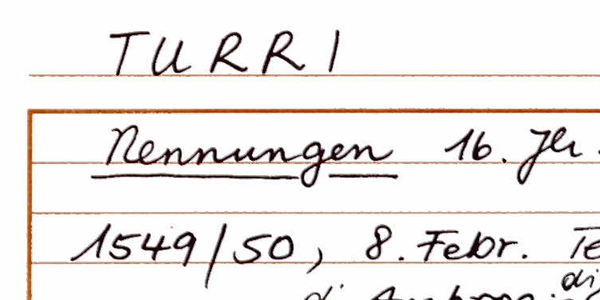 TURRI
Nennungen 16. Jh.
1549/50, 8. Febr. Te
di
di Ambrog